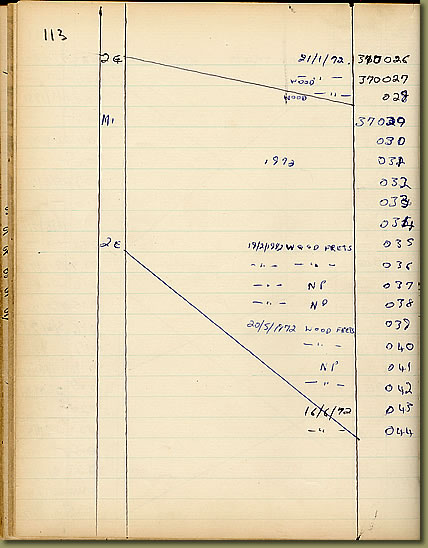 113
2G 21/1/72. 370026
WOOD " — 370027
WOOD — " — 028
M1 37029
030
1972 031
032
033
034
2E 19/2/1972 WOOD FRETS 035
— " — — " — 036
— " — NP 037
— " — NP 038
20/5/1972 WOOD FRETS 039
— " — 040
NP 041
— " — 042
16/6/72 043
— " — 044